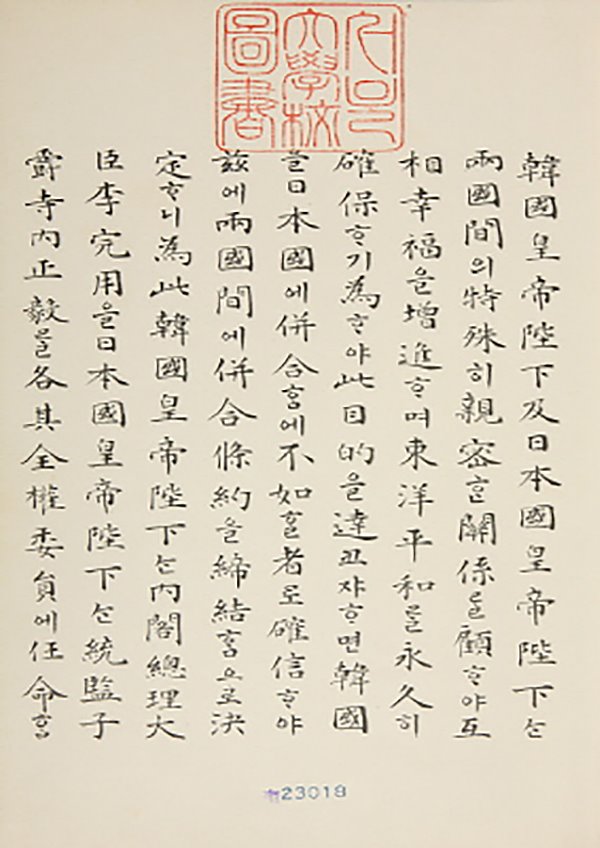 서울
大學校
圖書
韓國皇帝陛下及日本國皇帝陛下는
兩國間의特殊히親密ᄒᆞᆫ關係를顧ᄒᆞ야互
相幸福을增進ᄒᆞ며東洋平和를永久히
確保ᄒᆞ기為ᄒᆞ야此目的을達코쟈ᄒᆞ면韓國
을日本國에併合ᄒᆞᆷ에不如ᄒᆞᆯ者로確信ᄒᆞ야
玆에兩國間에併合條約을締結ᄒᆞᆷ으로決
定ᄒᆞ니為此韓國皇帝陛下는內閣總理大
臣李完用을日本國皇帝陛下는統監子
爵寺內正毅를各其全權委員에任命ᄒᆞᆷ
23018